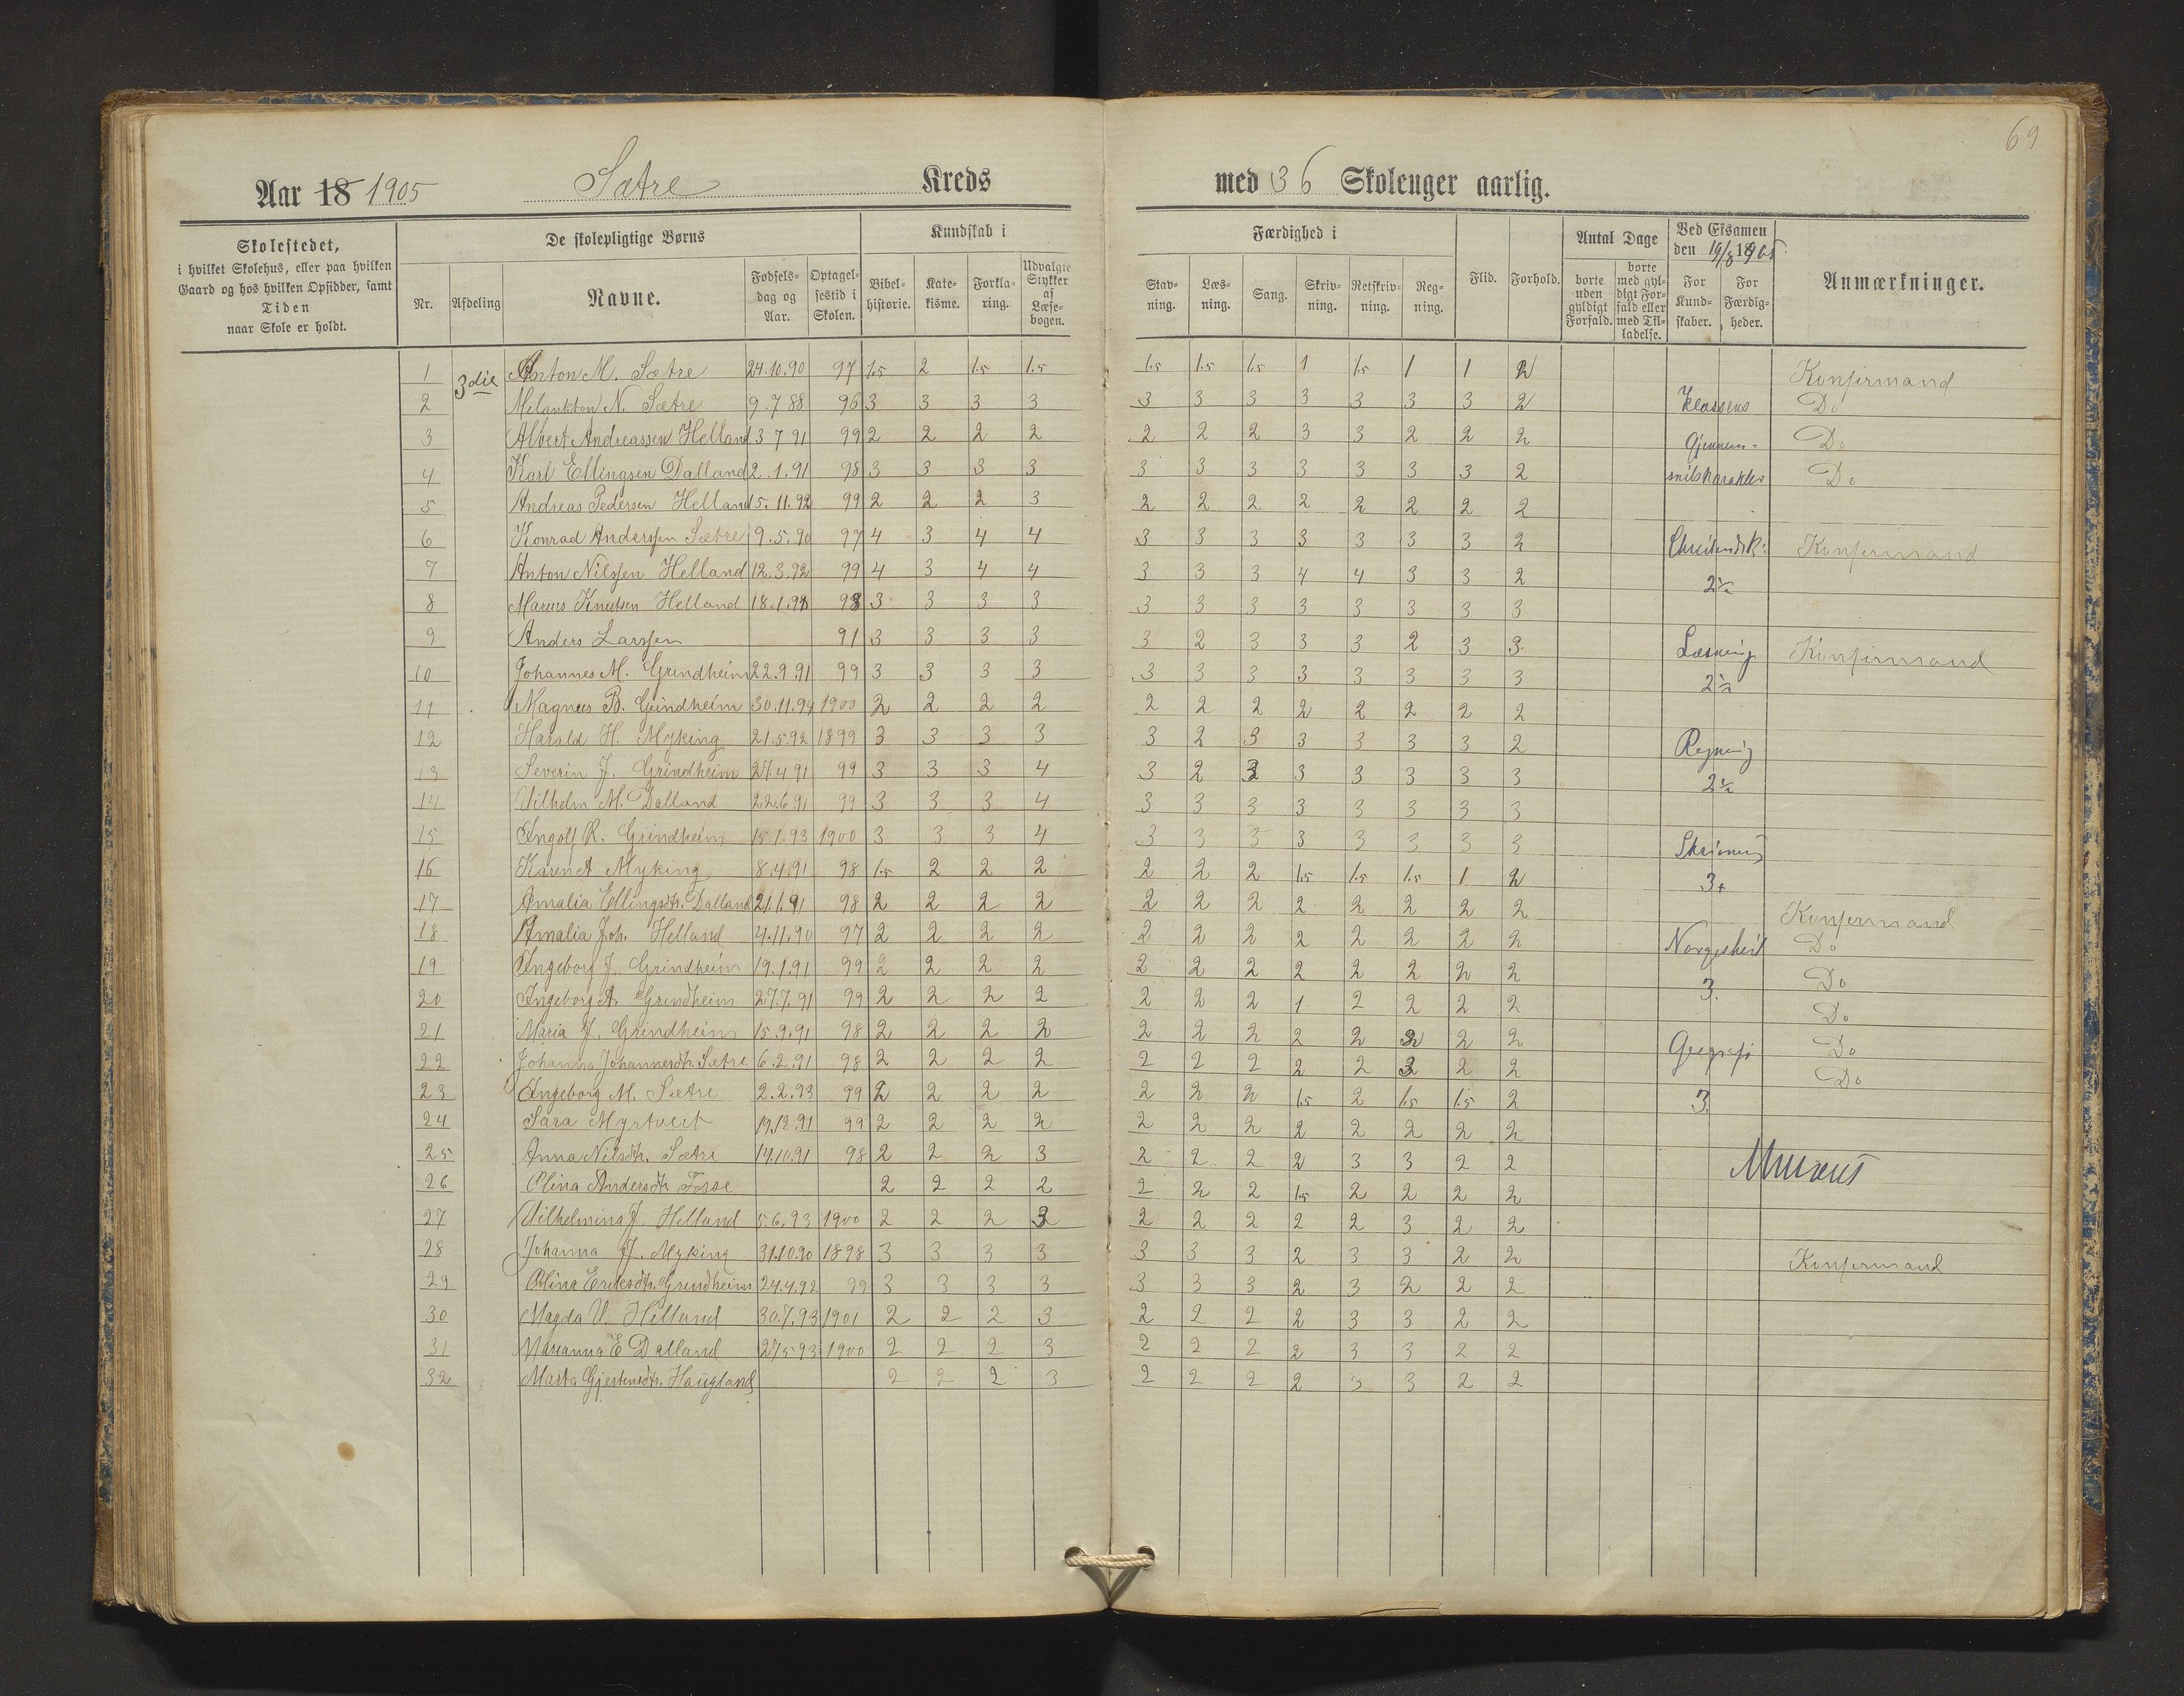 69
Aar 18 1905 Sætre Kreds med 36 Skoleuger aarlig.
Skolestedet, i hvilket Skolehus, eller paa hvilken Gaard og hos hvilken Opsidder, samt Tiden naar Skole er holdt.
De skolepligtige Børns
Nr. Afdeling Navne. Fødsels-dag og Aar. Optagel-sestid i Skolen.
Kundskab i
Bibel-historie. Kate-kisme. Forkla-ring. Udvalgte Stykker af Læse-bogen.
Færdighed i
Stav-ning. Læs-ning. Sang. Skriv-ning. Retskriv-ning. Reg-ning. Flid. Forhold.
Antal Dage
borte uden gyldigt Forfald. borte med gyl-digt For-fald eller med Til-ladelse.
Ved Eksamen den 19/8 1905.
For Kund-skaber. For Færdig-heder.
Anmærkninger.
1 3die Anton M. Sætre 24.10.90 97 1.5 2 1.5 1.5 1.5 1.5 1.5 1 1.5 1 1 2 Konfirmand
2 Melankton N. Sætre 9.7 88 96 3 3 3 3 3 3 3 3 3 3 3 2 Klassens Do
3 Albert Andreassen Helland 3 7 91 99 2 2 2 2 2 2 2 3 3 2 2 2 Gjennem- Do
4 Karl Ellingsen Dalland 2.1.91 98 3 3 3 3 3 3 3 3 3 3 3 2 snitskarakter Do
5 Andreas Pedersen Helland 5.11.92 99 2 2 2 3 2 2 2 2 2 2 2 2
6 Konrad Anderssen Sætre 9.5.90 97 4 3 4 4 3 3 3 3 3 3 3 2 Konfirmand
7 Anton Nilssen Helland 12.3.92 99 4 3 4 4 3 3 3 4 4 3 3 2 2½
8 Marius Knutsen Helland 18.1.98 98 3 3 3 3 3 3 3 3 3 3 3 3
9 Anders Larssen 91 3 3 3 3 3 2 3 3 3 2 3 3 Læsning Konfirmand
10 Johannes M. Grindheim 22.9.91 99 3 3 3 3 3 3 3 3 3 3 3 3 2½
11 Magnus B. Grindheim 30.11.94 1900 2 2 2 2 2 2 2 2 2 2 2 2
12 Harald H. Myking 21.5.92 1899 3 3 3 3 3 2 3 3 3 3 3 2 Regning
13 Severin J. Grindheim 27.4.91 99 3 3 3 4 3 2 3 3 3 3 3 3 2½
14 Vilhelm M. Dalland 22.6.91 99 3 3 3 4 3 3 3 3 3 3 3 3
15 Ingolf R. Grindheim 15.1.93 1900 3 3 3 4 3 3 3 3 3 3 3 3 Skrivning
16 Karen A Myking 8.4.91 98 1.5 2 2 2 2 2 2 1.5 1.5 1.5 1 2 3+
17 Amalia Ellingsdtr. Dalland 21.1.91 98 2 2 2 2 2 2 2 2 2 2 2 2 Konfirmand
18 Amalia Joh. Helland 4.11.90 97 2 2 2 2 2 2 2 2 2 2 2 2 Norgeshist Do
19 Ingeborg J. Grindheim 19.1.91 99 2 2 2 2 2 2 2 2 2 2 2 2 Do
20 Ingeborg A Grindheim 27.7.91 99 2 2 2 2 2 2 2 1 2 2 2 2 3. Do
21 Maria J. Grindheim 15.9.91 98 2 2 2 2 2 2 2 2 2 3 2 2 Do
22 Johanna Johannesdtr. Sætre 6.2.91 98 2 2 2 2 2 2 2 2 2 3 2 2 Geografi Do
23 Ingeborg M. Sætre 2.2.93 99 2 2 2 2 2 2 2 1.5 2 1.5 1.5 2 3.
24 Sara Myrtveit 19.12.91 99 2 2 2 2 2 2 2 2 2 2 2 2
25 Anna Nilsdtr. Sætre 14.10.91 98 2 2 2 3 2 2 2 2 3 3 2 2
26 Olina Andersdtr Fosse 2 2 2 2 2 2 2 1.5 2 2 2 2
27 Vilhelmina J. Helland 5.6.93 1900 2 2 2 3 2 2 2 2 2 3 2 2
28 Johanna J. Myking 31.10.90 1898 3 3 3 3 3 3 3 2 3 3 2 2 Konfirmand
29 Olina Eriksdtr. Grindheim 24.4.92 99 3 3 3 3 3 3 3 2 3 2 2 2
30 Magda V. Helland 30.7.93 1901 2 2 2 3 2 2 2 2 3 3 2 2
31 Marianna E Dalland 27.5.93 1900 2 2 2 3 2 2 2 2 3 3 2 2
32 Marta Gjertinsdtr. Haugland 2 2 2 3 2 2 2 2 3 3 2 2